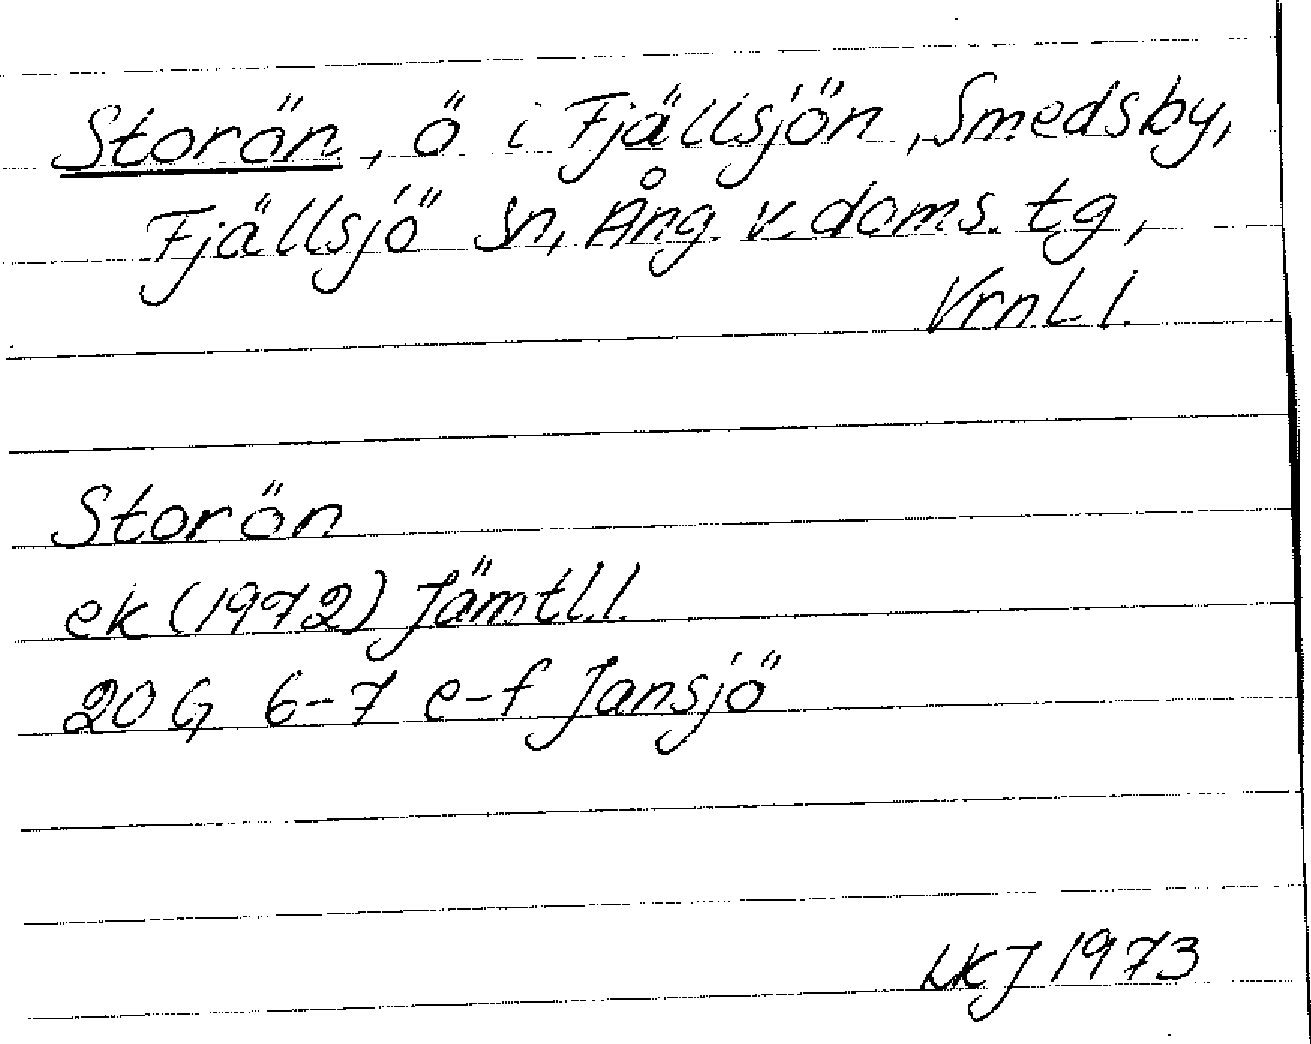 Storön, ö i Fjällsjön, Smedsby,
Fjällsjö sn, Ång. v. doms. tg,
Vrnl l.
Storön
ek (1972) Jämtl. l.
20 G 6-7 e-f Jansjö
LKJ 1973